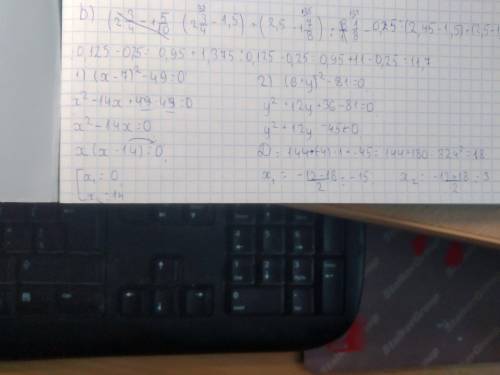 b) (2 3/4 - 1,5) + (2,5 - 1 7/8) : 1/8 - 0,25 = (2,45 - 1,5) + (2,5 - 1
0,125 - 0,25 = 0,95 + 1,375 : 0,125 - 0,25 = 0,95 + 11 - 0,25 = 11,7
1) (x-7)² - 49 = 0
x² - 14x + 49 - 49 = 0
x² - 14x = 0
x (x - 14) = 0
[ x₁ = 0
x₂ = 14
2) (6+y)² - 81 = 0
y² + 12y + 36 - 81 = 0
y² + 12y - 45 = 0
D = 144 + (-4) · 1 · -45 = 144 + 180 = 324 = 18
x₁ = -12-18/2 = -15 x₂ = -12+18/2 = 3